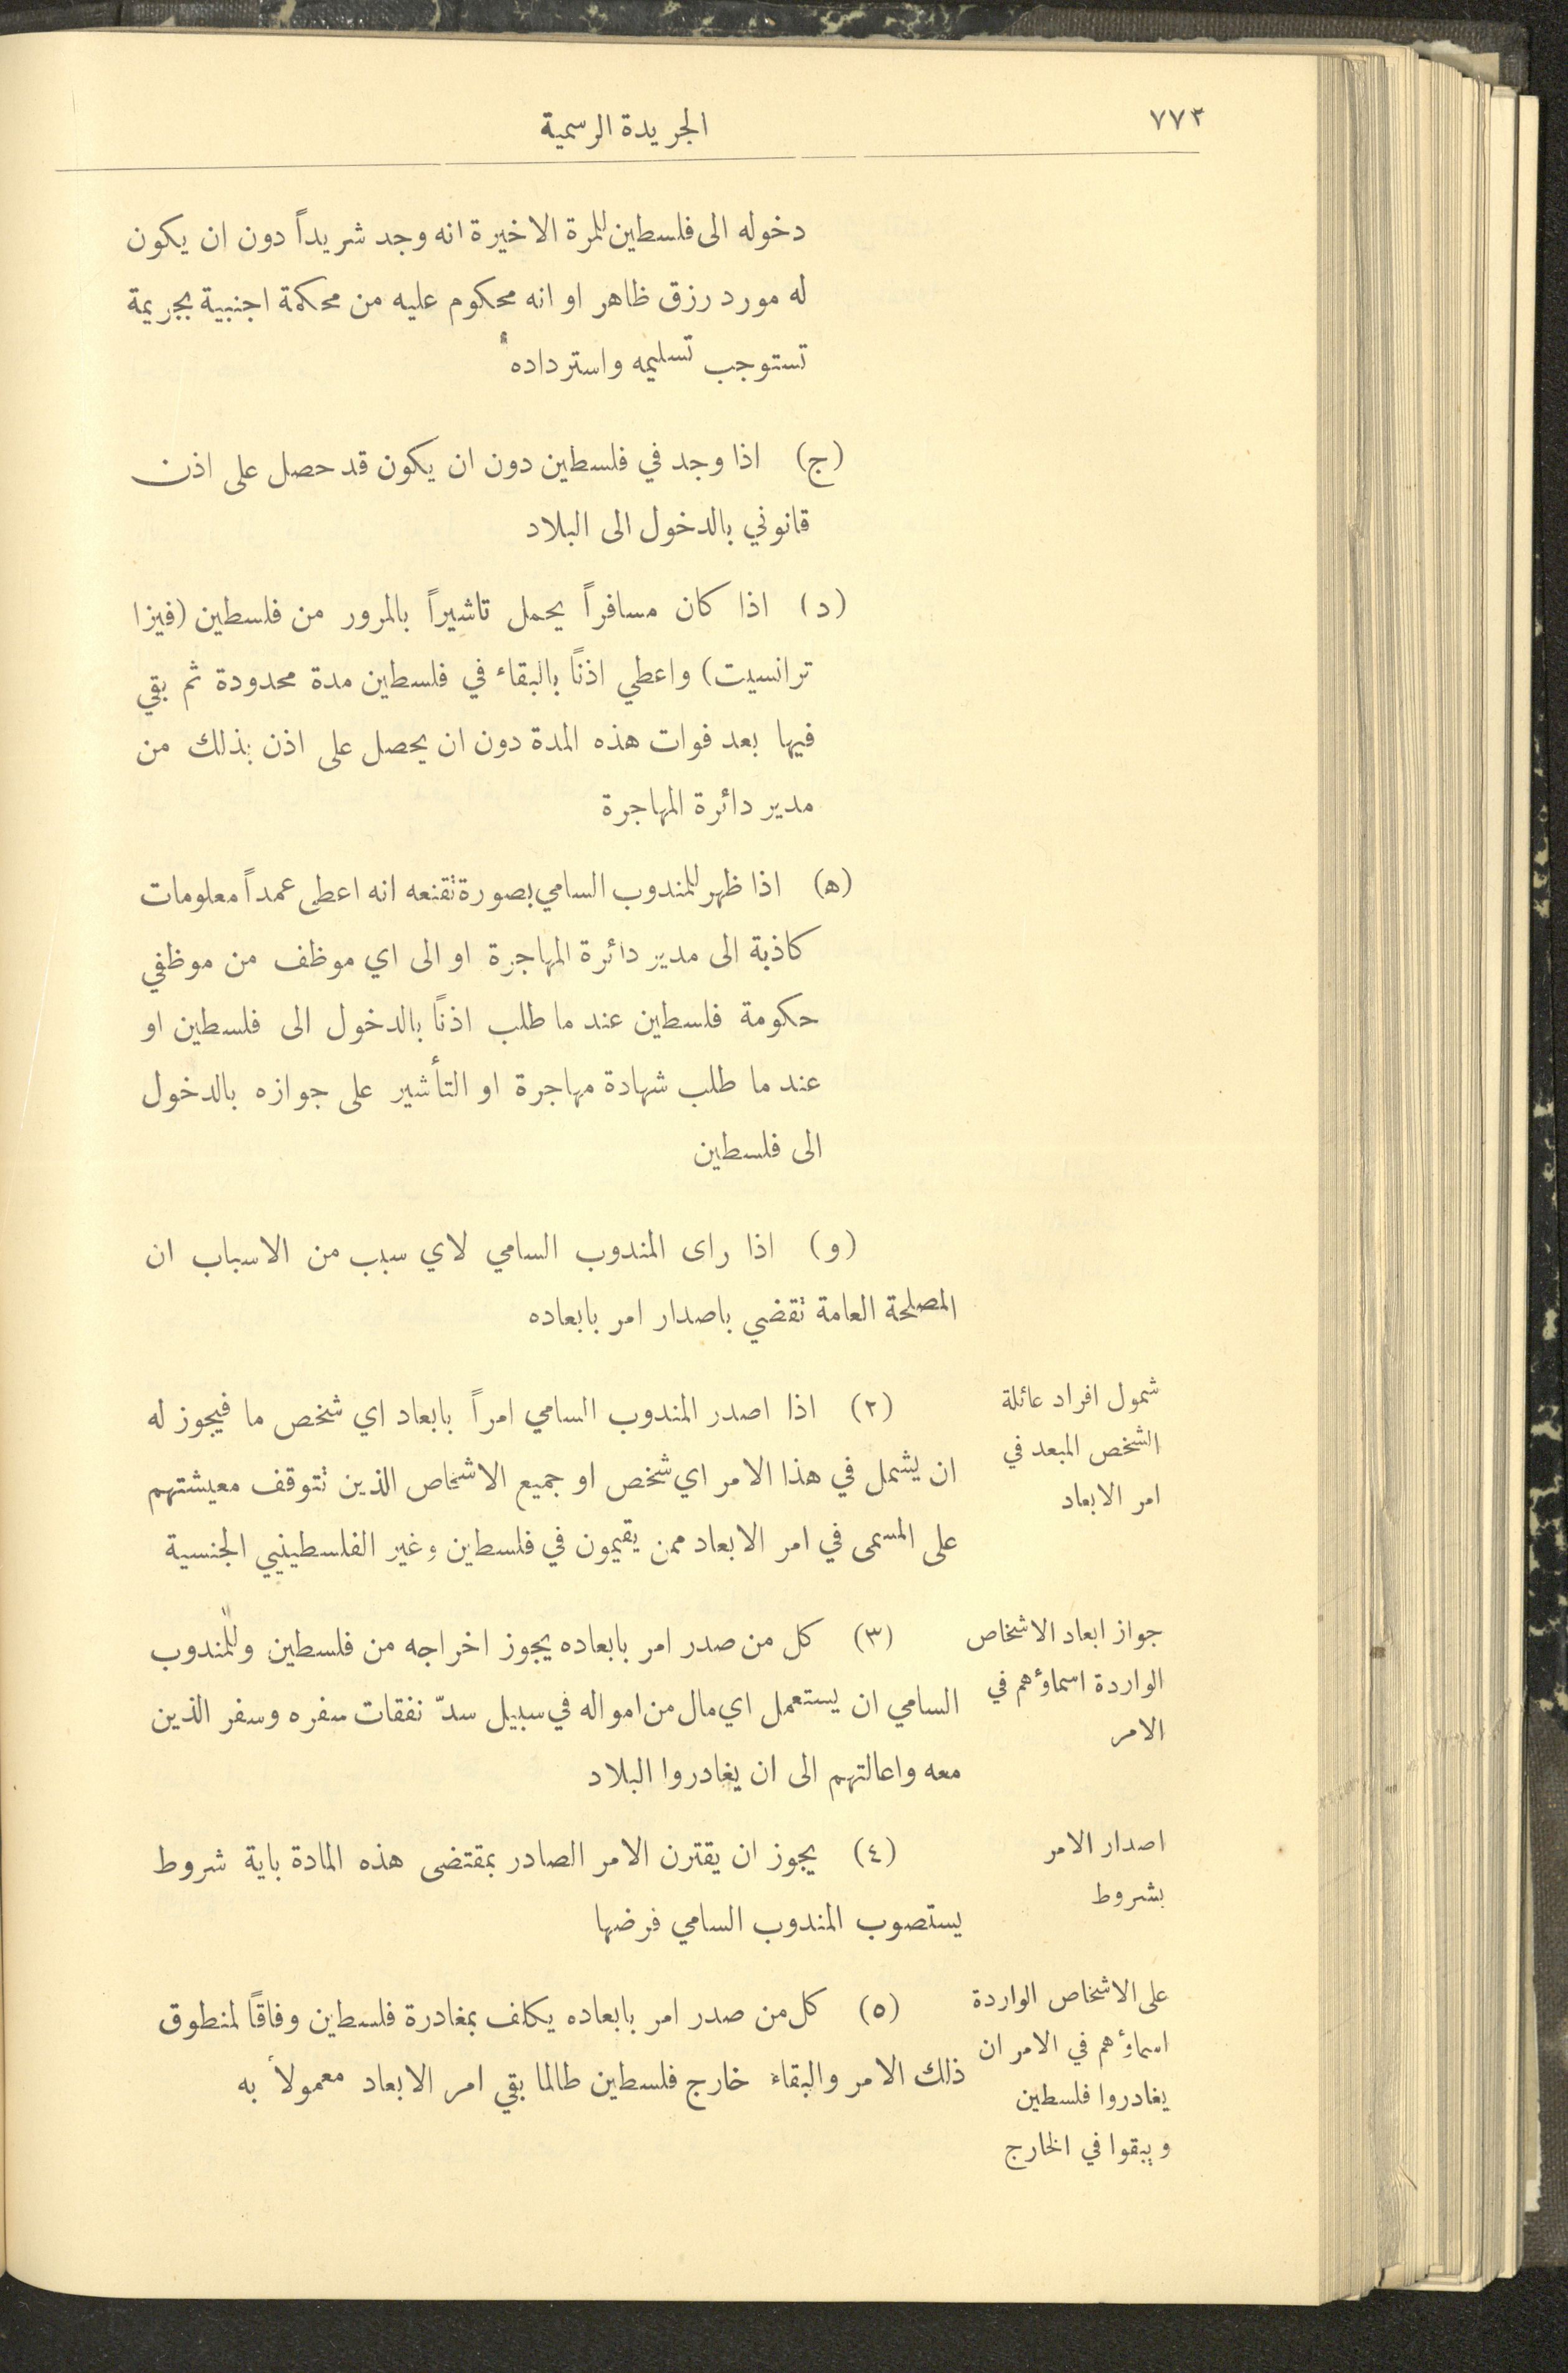 ٧٧٣
الجريدة الرسمية
دخوله الى فلسطين للمرة الاخيرة انه وجد شريداً دون ان يكون
له مورد رزق ظاهر او انه محكوم عليه من محكمة اجنبية بجريمة
تستوجب تسليمه واسترداده
(ج) اذا وجد في فلسطين دون ان يكون قد حصل على اذن
قانوني بالدخول الى البلاد
(د) اذا كان مسافراً يحمل تاشيراً بالمرور من فلسطين (فيزا
ترانسيت) واعطي اذناً بالبقاء في فلسطين مدة محدودة ثم بقي
فيها بعد فوات هذه المدة دون ان يحصل على اذن بذلك من
مدير دائرة المهاجرة
(ه) اذا ظهر للمندوب السامي بصورة تقنعه انه اعطى عمداً معلومات
كاذبة الى مدير دائرة المهاجرة او الى اي موظف من موظفي
حكومة فلسطين عند ما طلب اذناً بالدخول الى فلسطين او
عند ما طلب شهادة مهاجرة او التأشير على جوازه بالدخول
الى فلسطين
(و) اذا راى المندوب السامي لاي سبب من الاسباب ان
المصلحة العامة تقضي باصدار امر بابعاده
شمول افراد عائلة
الشخص المبعد في
امر الابعاد
(٢) اذا اصدر المندوب السامي امراً بابعاد اي شخص ما فيجوز له
ان يشمل في هذا الامر اي شخص او جميع الاشخاص الذين تتوقف معيشتهم
على المسمى في امر الابعاد ممن يقيمون في فلسطين وغير الفلسطينيي الجنسية
جواز ابعاد الاشخاص
الواردة اسماؤهم في
الامر
(٣) كل من صدر امر بابعاده يجوز اخراجه من فلسطين وللمندوب
السامي ان يستعمل اي مال من امواله في سبيل سدّ نفقات سفره وسفر الذين
معه واعالتهم الى ان يغادروا البلاد
اصدار الامر
بشروط
(٤) يجوز ان يقترن الامر الصادر بمقتضى هذه المادة باية شروط
يستصوب المندوب السامي فرضها
على الاشخاص الواردة
اسماؤهم في الامر ان
يغادروا فلسطين
ويبقوا في الخارج
(٥) كل من صدر امر بابعاده يكلف بمغادرة فلسطين وفاقاً لمنطوق
ذلك الامر والبقاء خارج فلسطين طالما بقي امر الابعاد معمولاً به